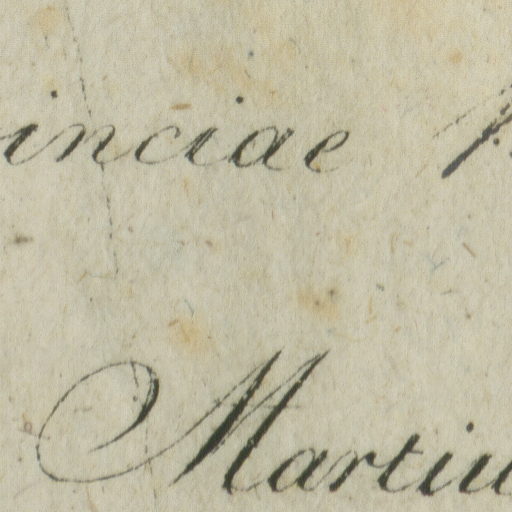 inciae
Martiu